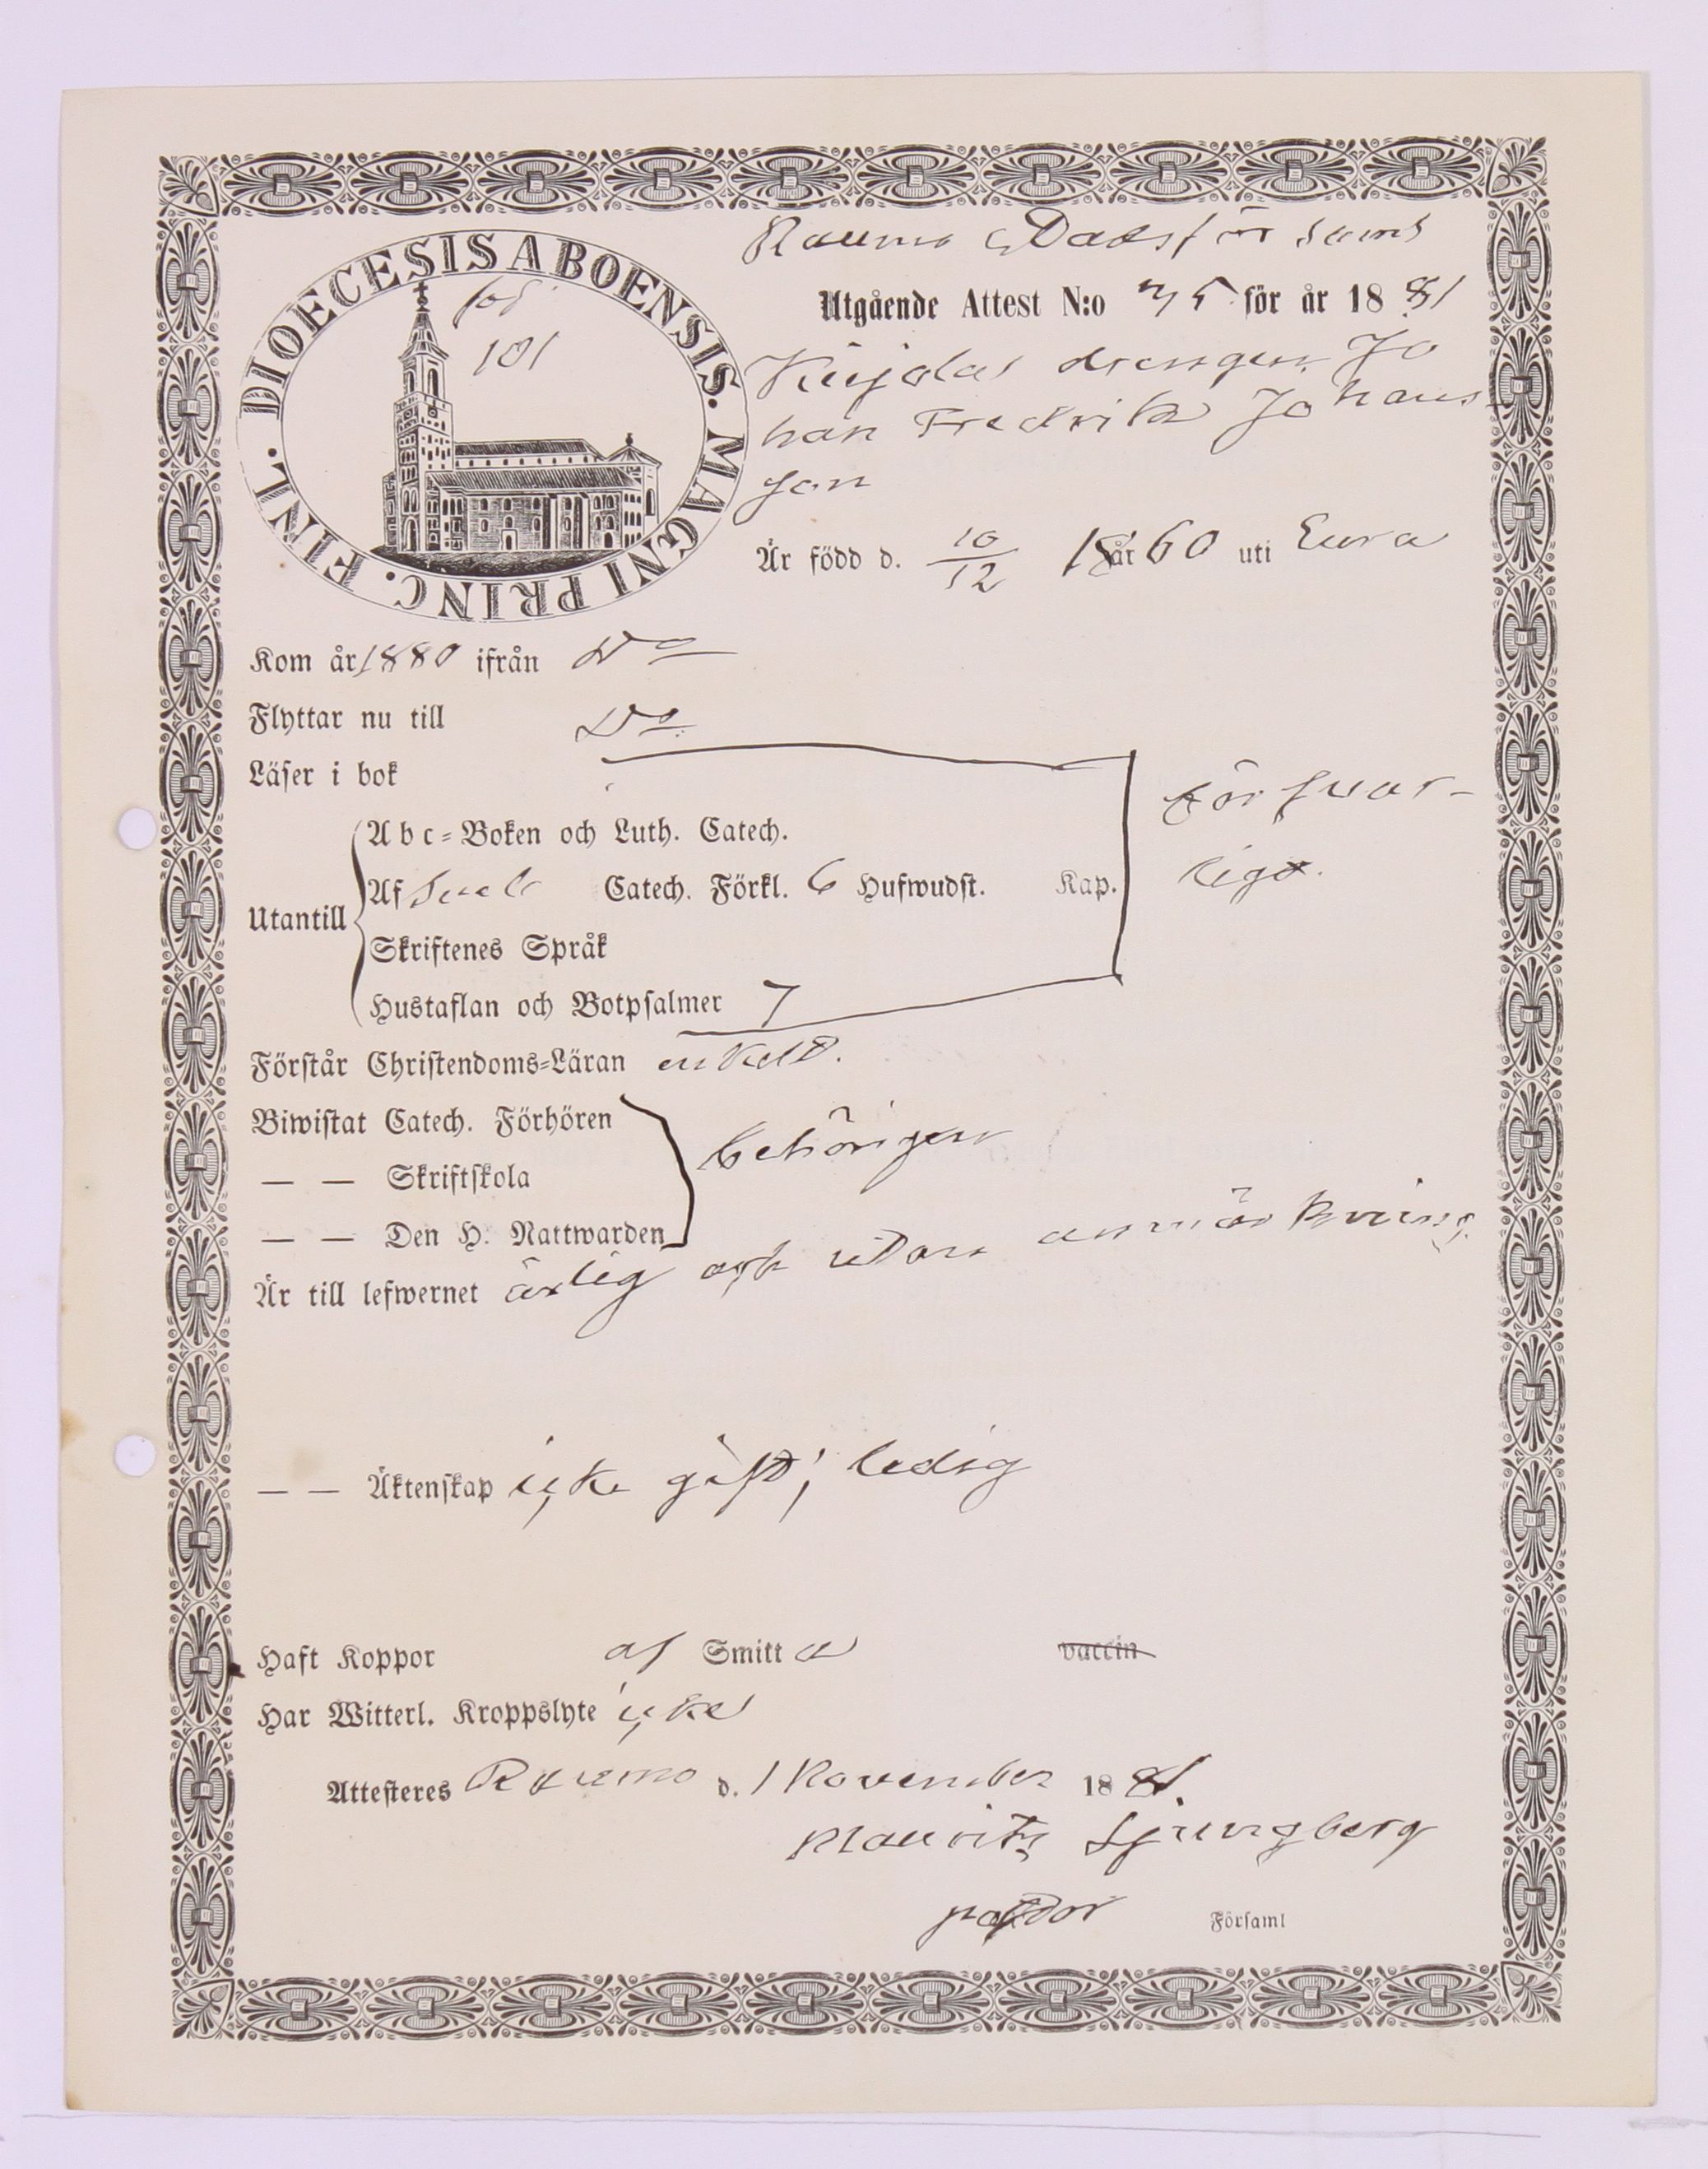 DIOECESIS ABOENSIS. MAGNI PRINC. FINL.
fol
101
Raumo Stadsförsaml
Utgående Attest N:o 75 för år 1881
drengen Jo
han Fredrik Johans
son
Är född d. 10/12 18 år 60 uti Eura
Kom år 1880 ifrån Do
Flyttar nu till Do
Läser i bok
försvar-
ligt.
Utantill
Abc-Boken och Luth. Catech.
Af Sveb Catech. Förkl. 6 Hufwudst. Kap.
Skriftenes Språk
Hustaflan och Botpsalmer 7
Förstår Christendoms-Läran enkelt.
Biwistat Catech. Förhören
— — Skriftskola
behörigen
— — Den H. Nattwarden
Är till lefwernet ärlig och utan anmärkning.
— — Äktenskap icke gift, ledig
Haft Koppor af Smitta vaccin
Har Witterl. Kroppslyte icke
Attesteres Raumo d. 1 November 1881.
Mauritz Ljungberg
pastor Församl